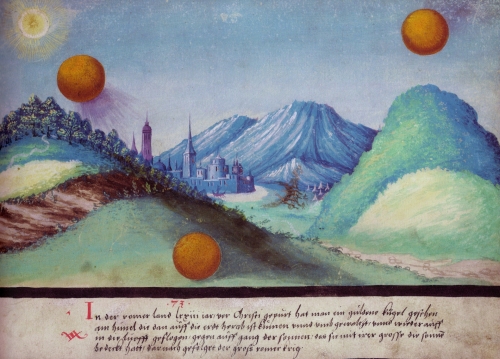 73
In der romer land lxxiii iar vor Christi gepurt hat man ein guldene kugel gesehen
am himel die dan auff die erdt herab ist kumen vnnd vmb gewalzt vnnd wider auff
in die lufft geflogen gegen auff gang der sonnen das sie mit irer grosse die sonne
bedeckt hatt darnach gefolget der groß romer krieg